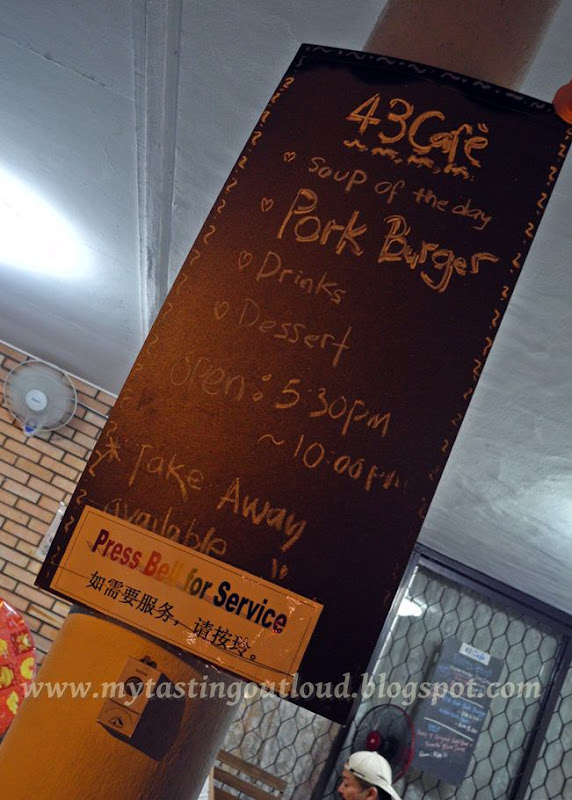 43Cafè
♡ Soup of the day
♡ Pork Burger
♡ Drinks
♡ Dessert
open: 5:30pm
~10:00pm
* Take Away
available
Press Bell for Service
如需要服务，请按玲。
www.mytastingoutloud.blogspot.com
43 Café